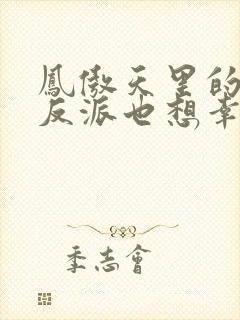 鳳傲天里的
反派也想幸
季志會